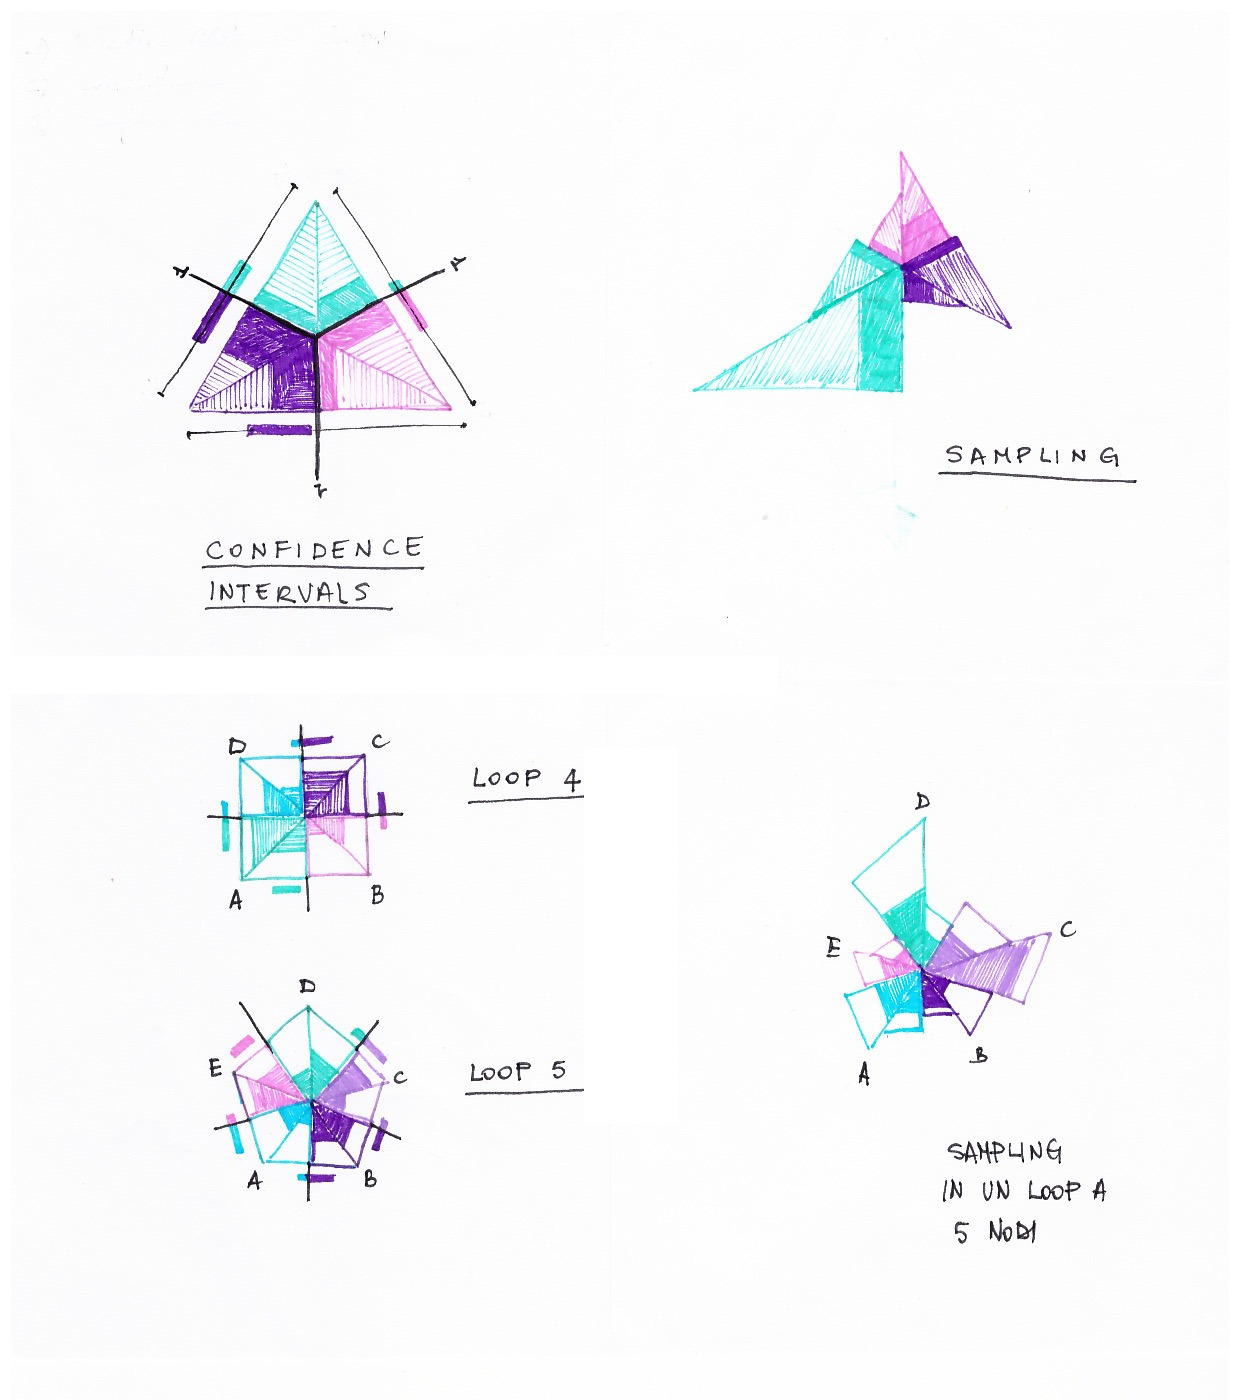 CONFIDENCE
INTERVALS
SAMPLING
D
C
A
B
LOOP 4
D
E
C
A
B
LOOP 5
D
C
E
B
A
SAMPLING
IN UN LOOP A
5 NODI